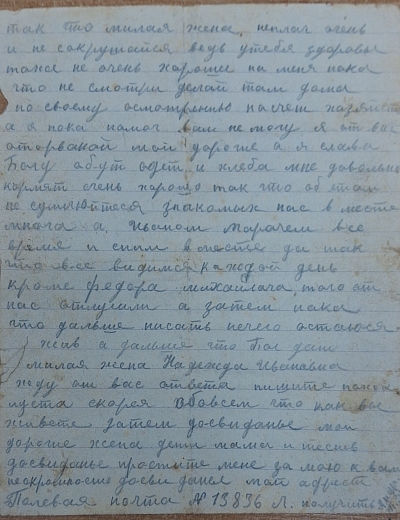 так что милая жена неплач очень
и не сокрушайся ведь утебя здоровье
тоже не очень хорошее на меня пока
что не смотри делай там дома
по своему осмотрению насчет
а я пока помоч вам не могу я от вас
оторваной мои дороге а я слава
Богу обут одет и хлеба мне довольно
кормят очень хорошо так что об етом
не сумлюйтеся знакомых нас в месте
многа с Иваном все
время и спим вместе да так
что все видимся каждой день
кроме федора михайлача того от
нас отлучили а затем пока
что дальше писать нечего остаюся
жив а дальше что Бог даст
милая жена Надежда Ивановна
жду от вас ответа пишите пожа
луста скорея Вобовсем что как вы
живете затем досвиданье мои
дороге жена дети мама и тесьть
досвиданье простите мене за мою к вам
досви данья мой адрест
Полевая почта № 13836 Л. получить